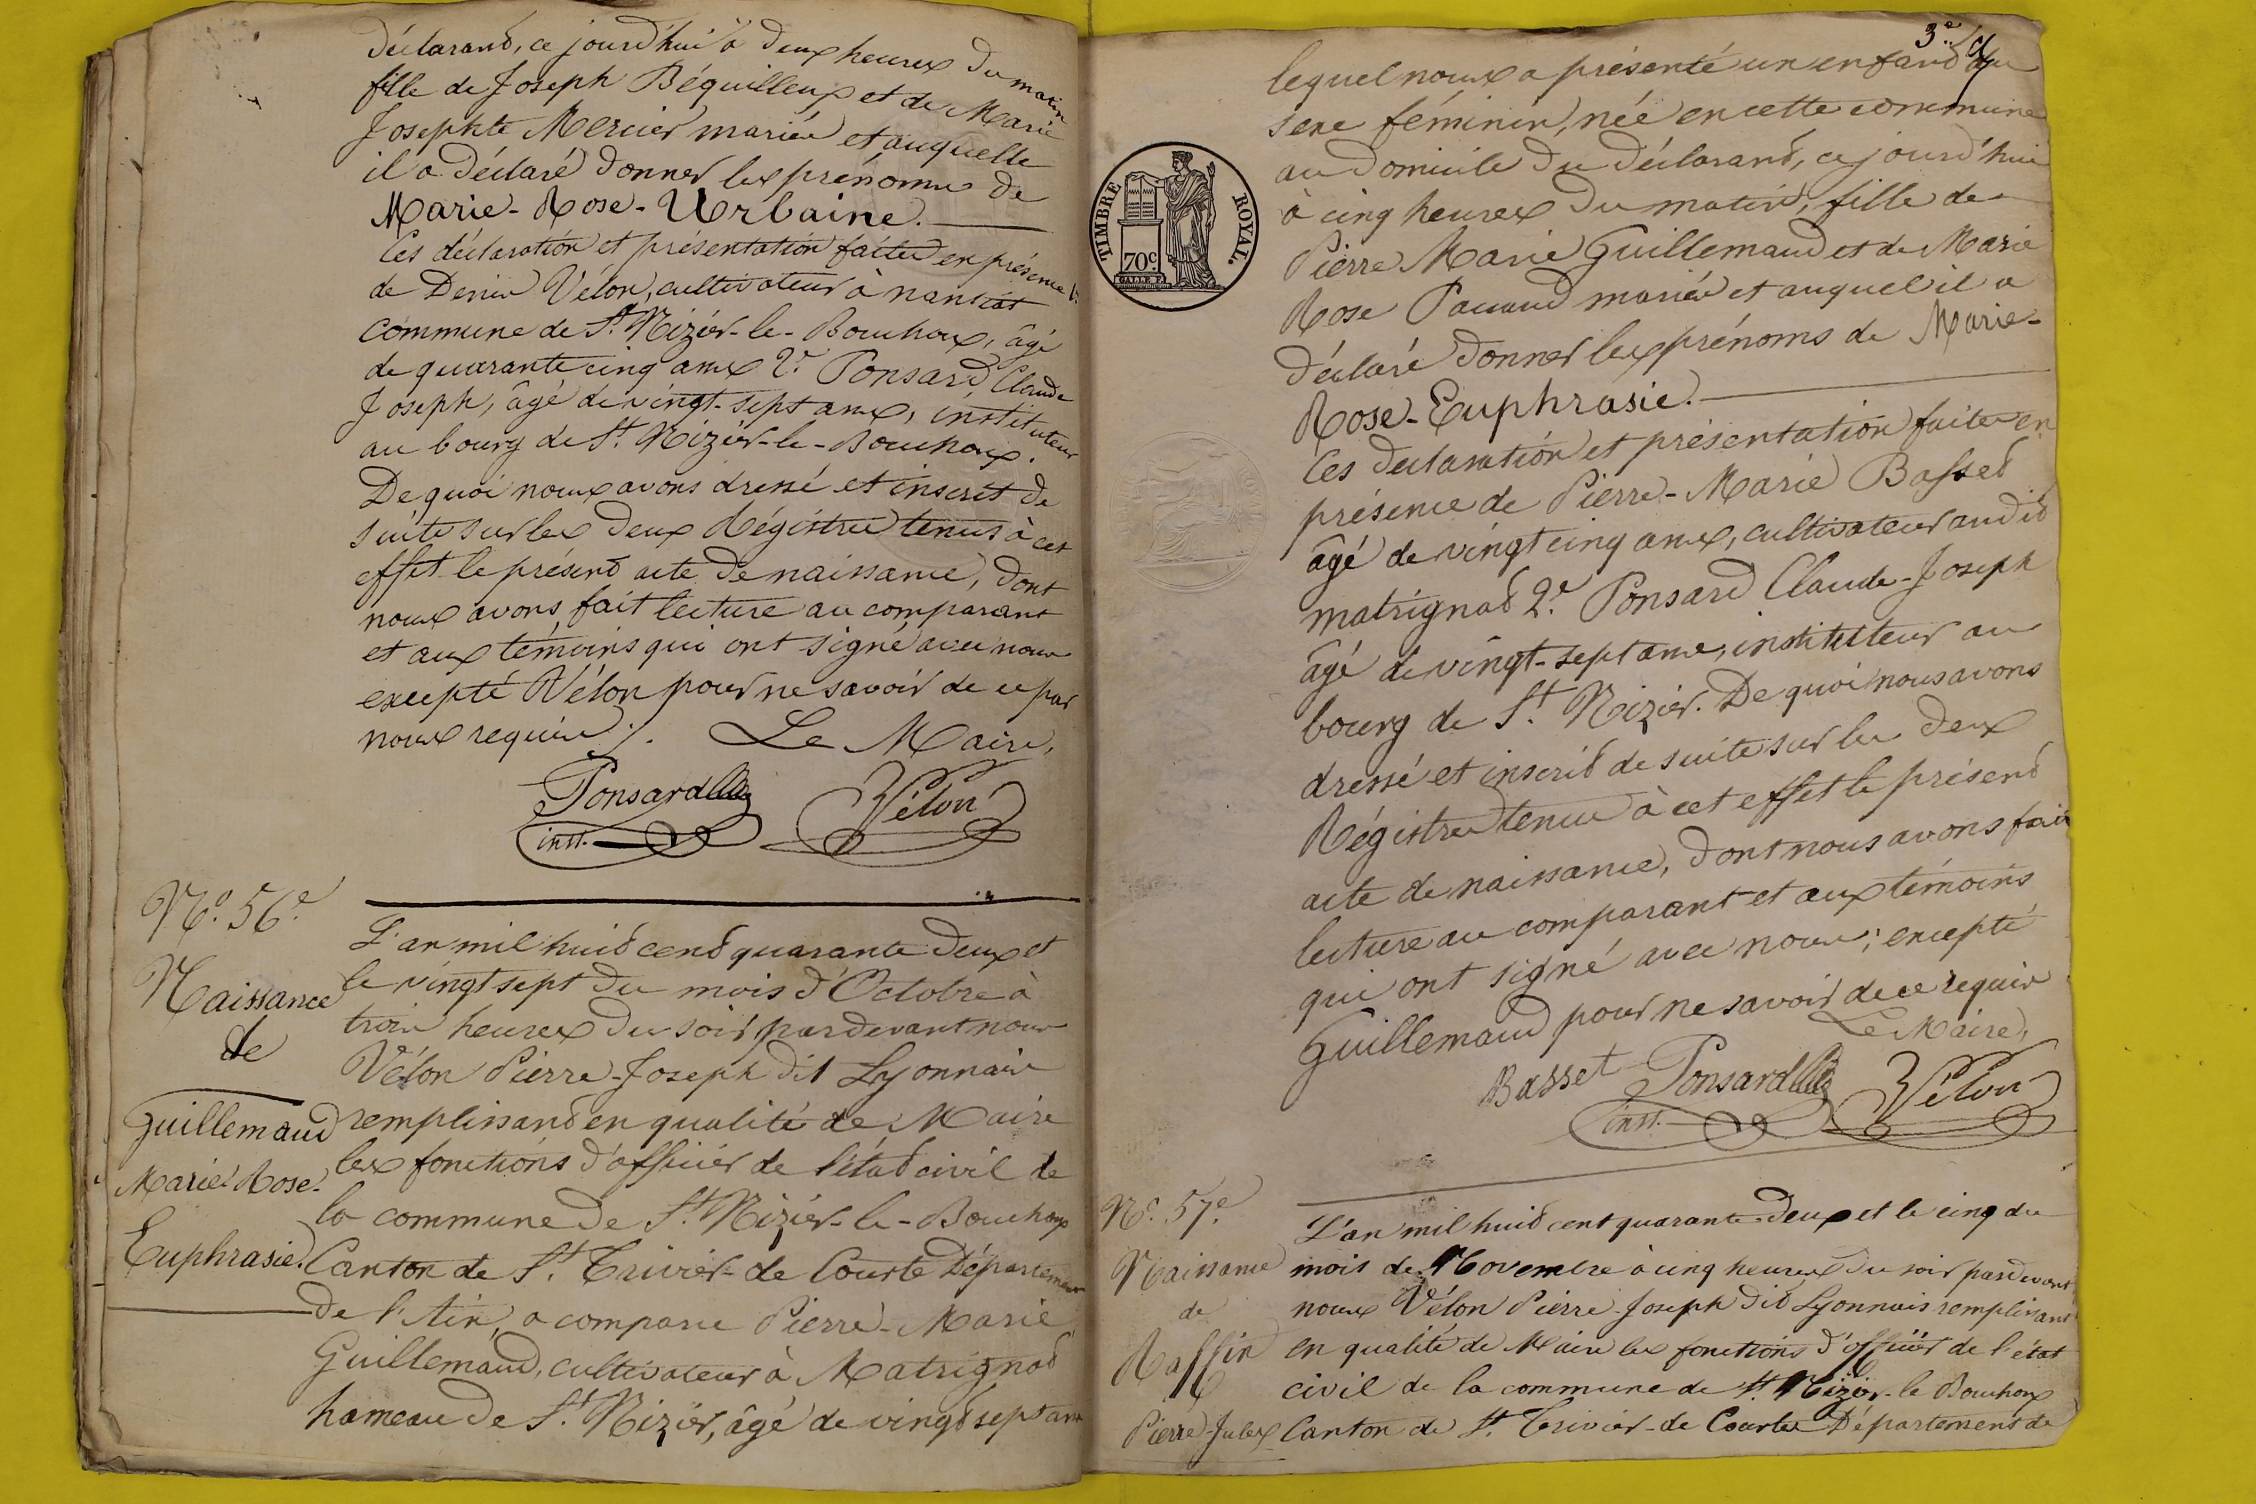 déclarant, ce jourd'hui à deux heures du matin
fille de Joseph Béguilleux et de Marie
Josephte Mercier mariés et auquelle
il a déclaré donner les prénoms de
Marie-Rose-Urbaine.
Ces déclaration et présentation faites en présence
de Denis Vélon, cultivateur à nanciat
commune de St. Nizier-le-Bouchoux, âgé
de quarante cinq ans 2° Ponsard Claude
Joseph, âgé de vingt-sept ans, instituteur
au bourg de St. Nizier-le-Bouchoux.
De quoi nous avons dressé et inscrit de
suite sur les deux Régistres tenus à cet
effet le présent acte de naissance, dont
nous avons fait lecture au comparant
et aux témoins qui ont signé avec nous
excepté Vélon pour ne savoir de ce par
nous requis ./. Le Maire,
Ponsard Vélon
inst.
N° 56e
Naissance
de
Guillemaud
Marie Rose
Euphrasie.
L'an mil huit cent quarante deux et
le vingt sept du mois d'Octobre à
trois heures du soir pardevant nous
Vélon Pierre-Joseph dit Lyonnais
remplissant en qualité de Maire
les fonctions d'officier de l'état civil de
la commune de St. Nizier-le-Bouchoux
Canton de St. Trivier-de Courte Département
de l'Ain, a comparu Pierre-Marie
Guillemaud, cultivateur à Matrignat
hameau de St. Nizier, âgé de vingt sept ans
3e
lequel nous a présenté un enfant du
sexe féminin, née en cette commune
au domicile du déclarant, ce jourd'hui
à cinq heures du matin, fille de
Pierre Marie Guillemaud et de Marie
Rose Pauaud mariés et auquel il a
déclaré donner les prénoms de Marie-
Rose-Euphrasie.
Ces declaration et présentation faites en
présence de Pierre-Marie Basset
âgé de vingt cinq ans, cultivateur audit
matrignat 2° Ponsard Claude-Joseph
âgé de vingt-sept ans, instituteur au
bourg de St. Nizier. De quoi nous avons
dressé et inscrit de suite sur les deux
Régistres tenus à cet effet le présent
acte de naissance, dont nous avons fait
lecture au comparant et aux témoins
qui ont signé avec nous; excepté
Guillemaud pour ne savoir de ce requis
Le Maire,
Basset Ponsard Vélon
inst.
TIMBRE ROYAL.
70c
N° 57e
Naissance
de
Raffin
Pierre-Jules
L'an mil huit cent quarante-deux et le cinq du
mois de Novembre à cinq heures du soir pardevant
nous Vélon Pierre-Joseph dit Lyonnais remplissant
en qualité de Maire les fonctions d'officier de l'état
civil de la commune de St. Nizier-le Bouchoux
Canton de St. Trivier-de Courtes Département de